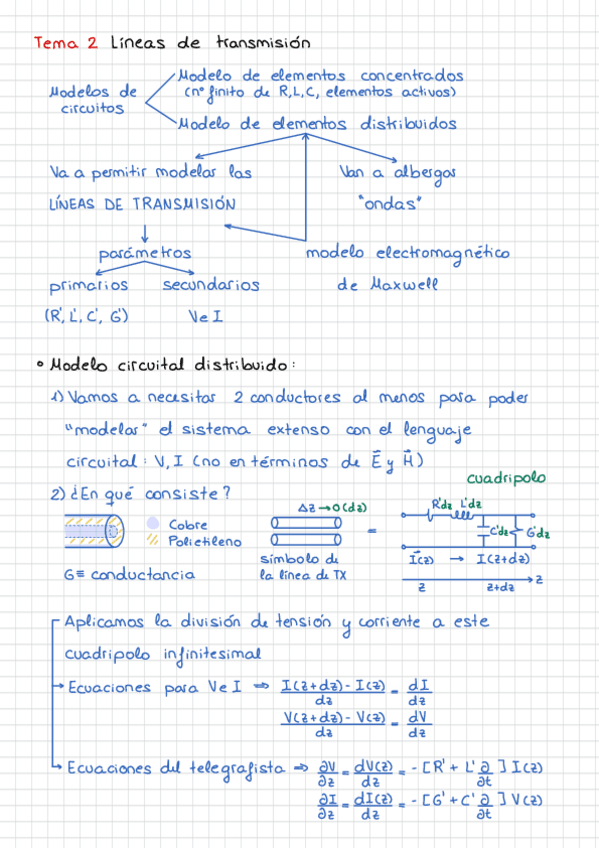 Tema 2 Líneas de transmisión
Modelo de elementos concentrados
(nº finito de R,L,C, elementos activos)
Modelos de
circuitos
Modelo de elementos distribuidos
Va a permitir modelar las
LÍNEAS DE TRANSMISIÓN
Van a albergar
"ondas"
parámetros
modelo electromagnético
de Maxwell
primarios
secundarios
(R', L', C', G')
V e I
• Modelo circuital distribuido:
1) Vamos a necesitar 2 conductores al menos para poder
"modelar" el sistema extenso con el lenguaje
circuital: V, I (no en términos de E⃗ y H⃗)
cuadripolo
2) ¿En qué consiste?
Δz→0(dz)
R'dz L'dz
Cobre
Polietileno
=
C'dz
G'dz
G≡ conductancia
símbolo de
la línea de TX
I⃗(z) → I(z+dz)
z z+dz z
Aplicamos la división de tensión y corriente a este
cuadripolo infinitesimal
→ Ecuaciones para V e I ⇒ I(z+dz)-I(z)/dz = dI/dz
V(z+dz)-V(z)/dz = dV/dz
→ Ecuaciones del telegrafista ⇒ ∂V/∂z = dV(z)/dz = -[R' + L' ∂/∂t] I(z)
∂I/∂z = dI(z)/dz = -[G' + C' ∂/∂t] V(z)